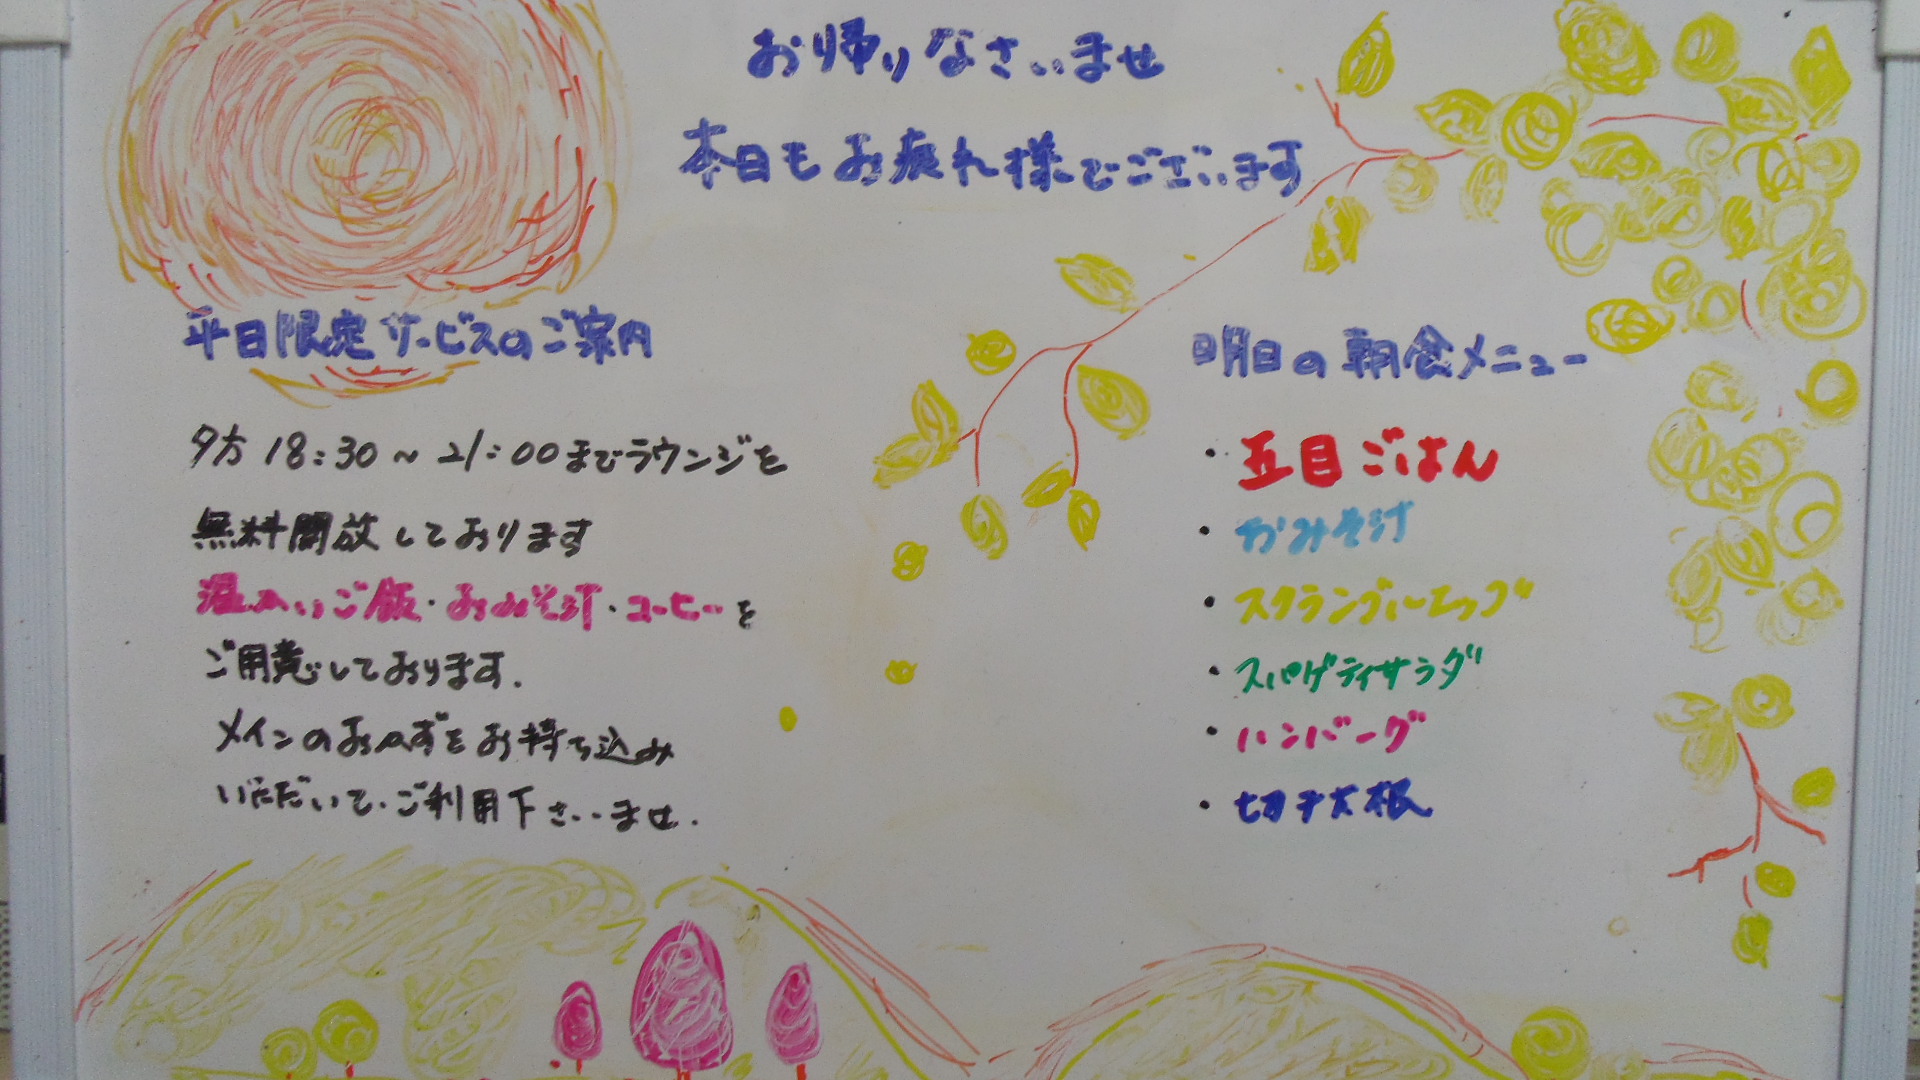 お帰りなさいませ
本日もお疲れ様でございます
平日限定サービスのご案内
夕方 18:30～21:00までラウンジを
無料開放しております
温かいご飯・おみそ汁・コーヒーを
ご用意しております.
メインのおかずをお持ち込み
いただいて.ご利用下さいませ.
明日の朝食メニュー
・五目ごはん
・おみそ汁
・スクランブルエッグ
・スパゲティサラダ
・ハンバーグ
・切干大根